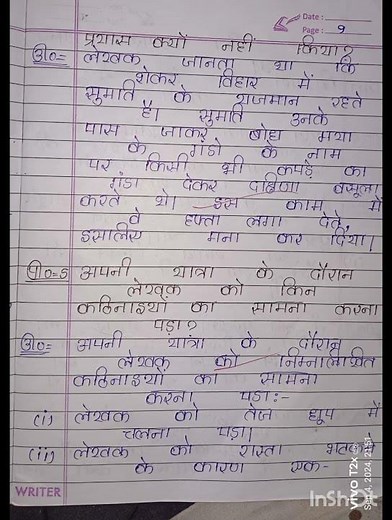 Date :
Page : 9
प्रयास क्यों नहीं किया?
उ०= लेखक जानता था कि
शेकर विहार में
सुमति के यजमान रहते
है। सुमति उनके
पास जाकर बोध गया
के गंडो के नाम
पर किसी भी कपड़े का
गंडा देकर दक्षिणा वसूला
करते थे। इस काम में
वे हफ्ता लगा देते,
इसलिए मना कर दिया।
प्र०=5 अपनी यात्रा के दौरान
लेखक को किन
कठिनाइयों का सामना करना
पड़ा?
उ०= अपनी यात्रा के दौरान
लेखक को निम्नलिखित
कठिनाइयों का सामना
करना पड़ा:-
(i) लेखक को तेज धूप में
चलना पड़ा।
(ii) लेखक को रास्ता भटकने
के कारण एक-
WRITER
vivo T2x
Sep 4, 2024, 21:51
InShot